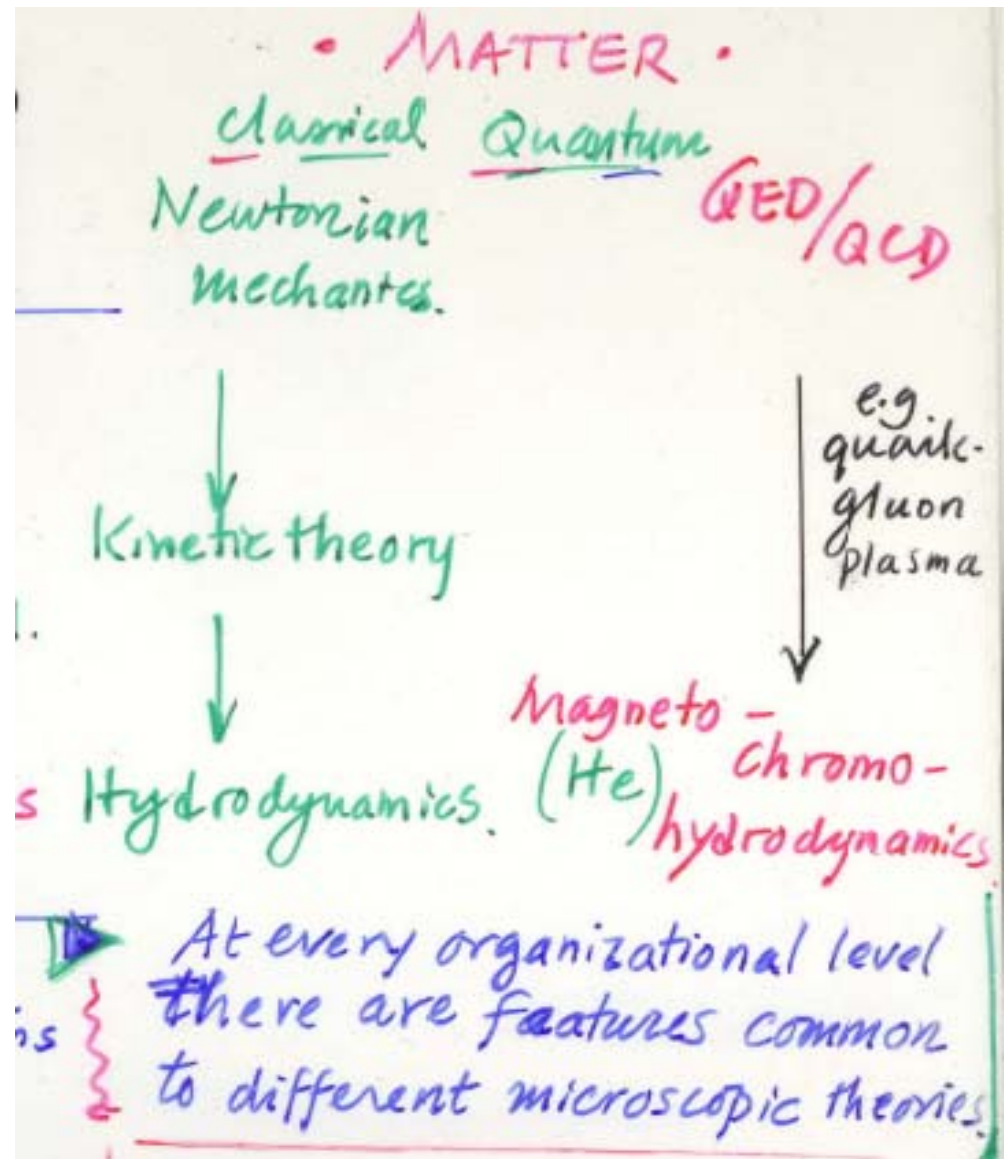 • MATTER •
Classical Quantum
Newtonian
mechanics.
QED/QCD
e.g.
quark-
gluon
plasma
Kinetic theory
Magneto-
chromo-
hydrodynamics.
Hydrodynamics. (He)
At every organizational level
there are features common
to different microscopic theories.